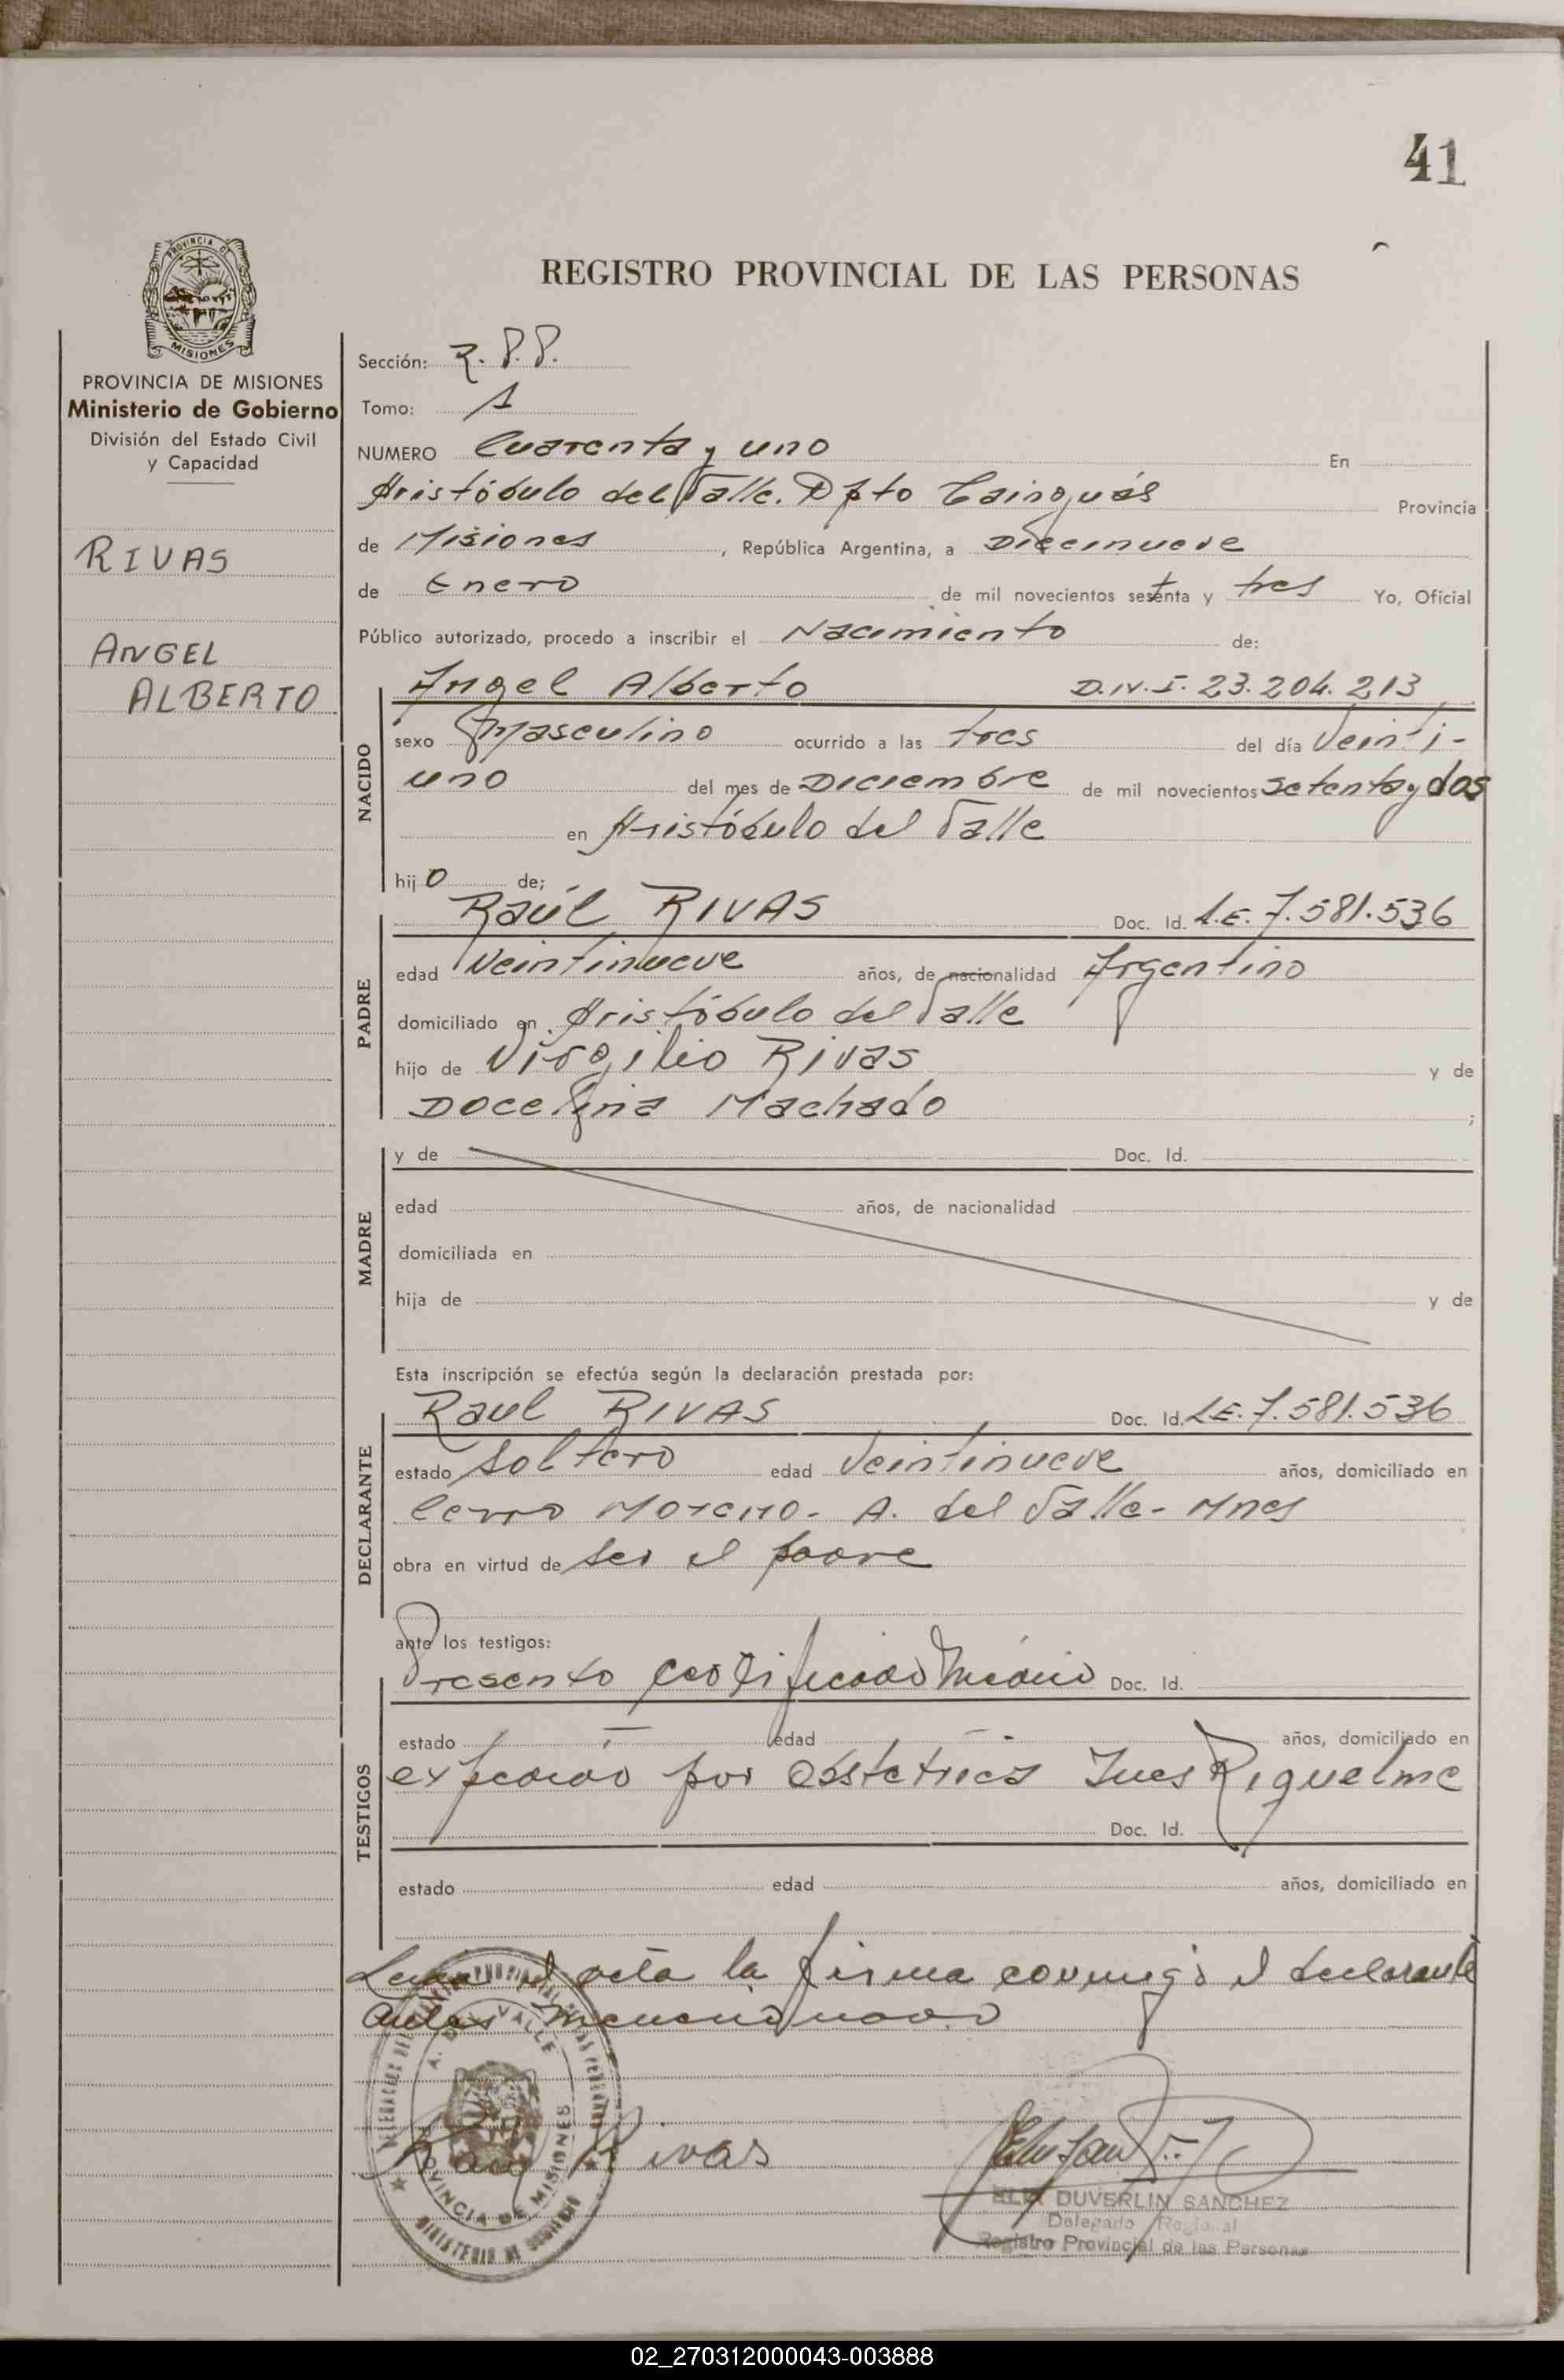 41
REGISTRO PROVINCIAL DE LAS PERSONAS
PROVINCIA DE MISIONES
Ministerio de Gobierno
División del Estado Civil
y Capacidad
RIVAS
ANGEL
ALBERTO
Sección: R.P.P.
Tomo: 1
NUMERO Cuarenta y uno En
Aristóbulo del Valle. Dpto Cainguás Provincia
de Misiones, República Argentina, a Diecinueve
de Enero de mil novecientos setenta y tres Yo, Oficial
Público autorizado, procedo a inscribir el Nacimiento de:
NACIDO
Angel Alberto D.N.I. 23.204.213
sexo masculino ocurrido a las tres del día Veinti-
uno del mes de Diciembre de mil novecientos setenta y dos
en Aristóbulo del Valle
hijo de;
PADRE
Raúl RIVAS Doc. Id. L.E. 7.581.536
edad Veintinueve años, de nacionalidad Argentino
domiciliado en Aristóbulo del Valle
hijo de Virgilio Rivas y de
Docelina Machado ;
MADRE
y de Doc. Id.
edad años, de nacionalidad
domiciliada en
hija de y de
Esta inscripción se efectúa según la declaración prestada por:
DECLARANTE
Raul RIVAS Doc. Id. L.E. 7.581.536
estado Soltero edad Veintinueve años, domiciliado en
Cerro Moreno - A. del Valle - Mnes
obra en virtud de ser el padre
ante los testigos:
TESTIGOS
Presento certificado médico Doc. Id.
estado edad años, domiciliado en
expedido por Obstetrica Ines Riquelme
Doc. Id.
estado edad años, domiciliado en
Leida el acta la firma conmigo el declarante
antes mencionado
A. DEL VALLE
PROVINCIA DE MISIONES
MINISTERIO DE GOBIERNO
Raul Rivas
DUVERLIN SANCHEZ
Delegado Regional
Registro Provincial de las Personas
02_270312000043-003888